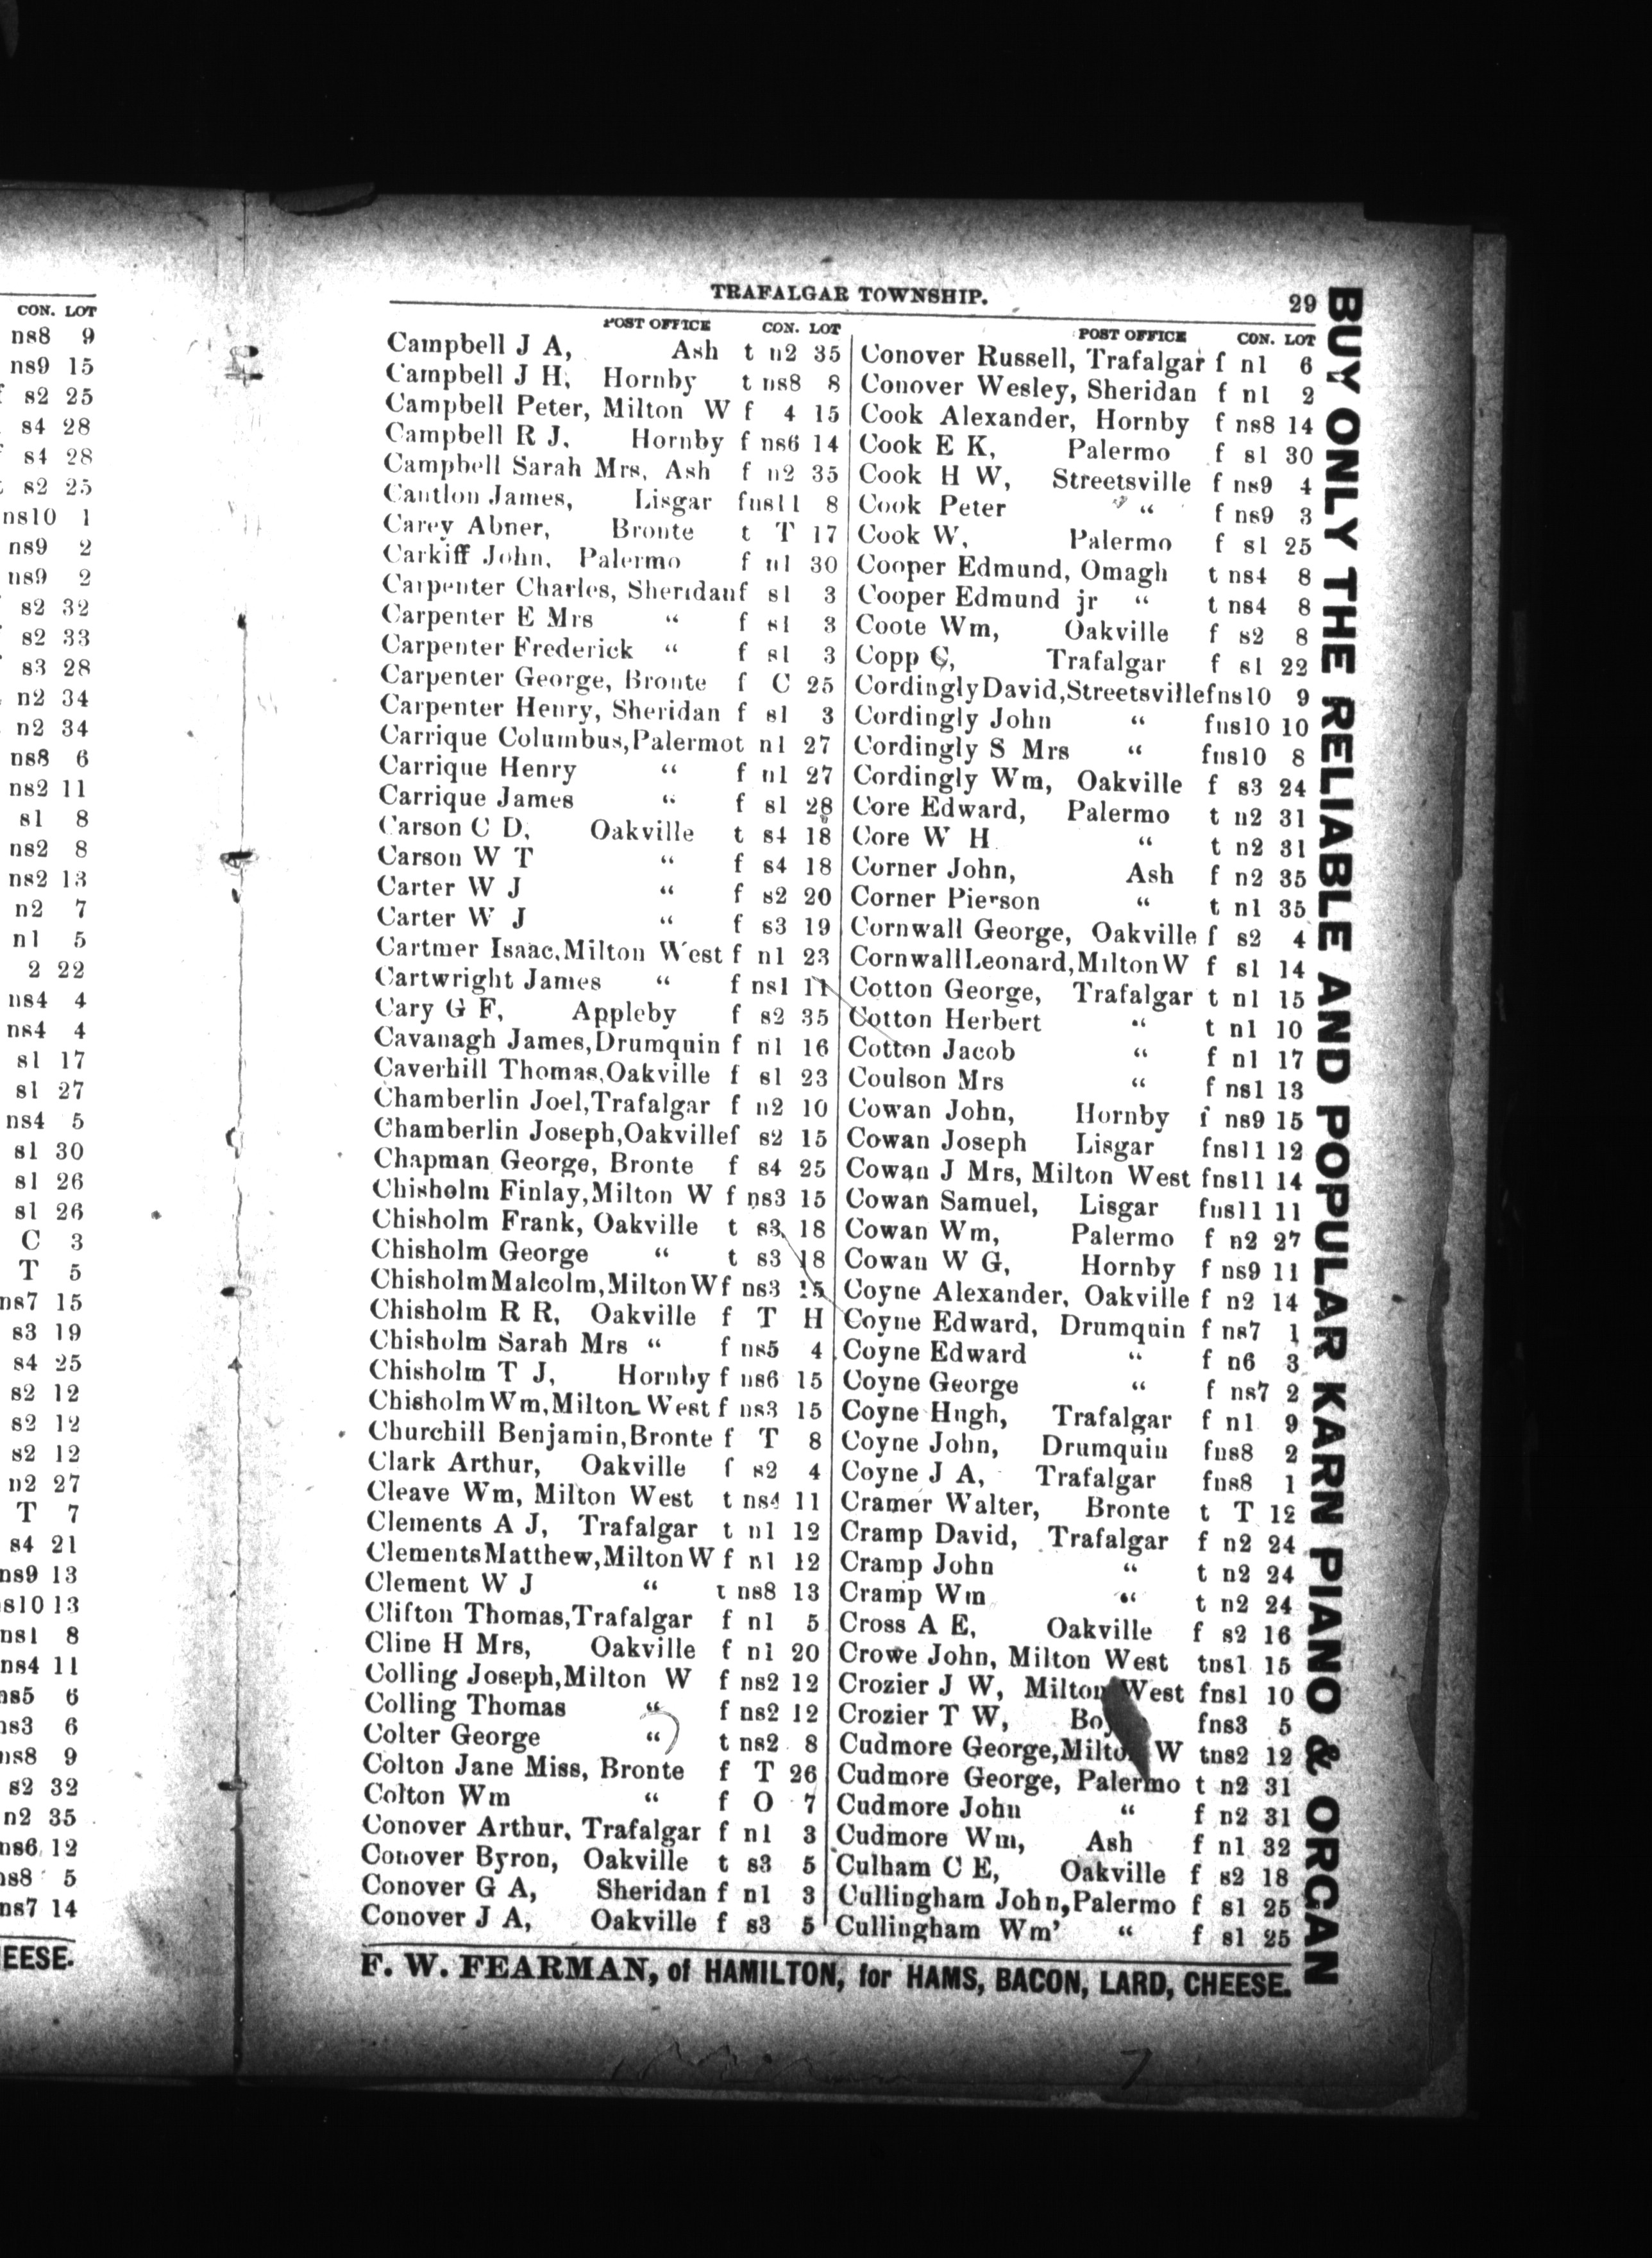 CON. LOT
ns8 9
ns9 15
s2 25
s4 28
s4 28
s2 25
ns10 1
ns9 2
ns9 2
s2 32
s2 33
s3 28
n2 34
n2 34
ns8 6
ns2 11
s1 8
ns2 8
ns2 13
n2 7
n1 5
2 22
ns4 4
ns4 4
s1 17
s1 27
ns4 5
s1 30
s1 26
s1 26
C 3
T 5
ns7 15
s3 19
s4 25
s2 12
s2 12
s2 12
n2 27
T 7
s4 21
ns9 13
s10 13
ns1 8
ns4 11
ns5 6
ns3 6
ns8 9
s2 32
n2 35
ns6 12
ns8 5
ns7 14
EESE.
TRAFALGAR TOWNSHIP. 29
POST OFFICE CON. LOT
Campbell J A, Ash t n2 35
Campbell J H, Hornby t ns8 8
Campbell Peter, Milton W f 4 15
Campbell R J, Hornby f ns6 14
Campbell Sarah Mrs, Ash f n2 35
Cantlon James, Lisgar fns11 8
Carey Abner, Bronte t T 17
Carkiff John, Palermo f n1 30
Carpenter Charles, Sheridanf s1 3
Carpenter E Mrs “ f s1 3
Carpenter Frederick “ f s1 3
Carpenter George, Bronte f C 25
Carpenter Henry, Sheridan f s1 3
Carrique Columbus,Palermot n1 27
Carrique Henry “ f n1 27
Carrique James “ f s1 28
Carson C D, Oakville t s4 18
Carson W T “ f s4 18
Carter W J “ f s2 20
Carter W J “ f s3 19
Cartmer Isaac,Milton West f n1 23
Cartwright James “ f ns1 11
Cary G F, Appleby f s2 35
Cavanagh James,Drumquin f n1 16
Caverhill Thomas,Oakville f s1 23
Chamberlin Joel,Trafalgar f n2 10
Chamberlin Joseph,Oakvillef s2 15
Chapman George, Bronte f s4 25
Chisholm Finlay,Milton W f ns3 15
Chisholm Frank, Oakville t s3 18
Chisholm George “ t s3 18
ChisholmMalcolm,MiltonWf ns3 15
Chisholm R R, Oakville f T H
Chisholm Sarah Mrs “ f ns5 4
Chisholm T J, Hornby f ns6 15
ChisholmWm,Milton West f ns3 15
Churchill Benjamin,Bronte f T 8
Clark Arthur, Oakville f s2 4
Cleave Wm, Milton West t ns4 11
Clements A J, Trafalgar t n1 12
ClementsMatthew,MiltonW f n1 12
Clement W J “ t ns8 13
Clifton Thomas,Trafalgar f n1 5
Cline H Mrs, Oakville f n1 20
Colling Joseph,Milton W f ns2 12
Colling Thomas “ f ns2 12
Colter George “ t ns2 8
Colton Jane Miss, Bronte f T 26
Colton Wm “ f O 7
Conover Arthur, Trafalgar f n1 3
Conover Byron, Oakville t s3 5
Conover G A, Sheridan f n1 3
Conover J A, Oakville f s3 5
POST OFFICE CON. LOT
Conover Russell, Trafalgar f n1 6
Conover Wesley, Sheridan f n1 2
Cook Alexander, Hornby f ns8 14
Cook E K, Palermo f s1 30
Cook H W, Streetsville f ns9 4
Cook Peter “ f ns9 3
Cook W, Palermo f s1 25
Cooper Edmund, Omagh t ns4 8
Cooper Edmund jr “ t ns4 8
Coote Wm, Oakville f s2 8
Copp C, Trafalgar f s1 22
CordinglyDavid,Streetsvillefns10 9
Cordingly John “ fns10 10
Cordingly S Mrs “ fns10 8
Cordingly Wm, Oakville f s3 24
Core Edward, Palermo t n2 31
Core W H “ t n2 31
Corner John, Ash f n2 35
Corner Pierson “ t n1 35
Cornwall George, Oakville f s2 4
CornwallLeonard,MiltonW f s1 14
Cotton George, Trafalgar t n1 15
Cotton Herbert “ t n1 10
Cotton Jacob “ f n1 17
Coulson Mrs “ f ns1 13
Cowan John, Hornby f ns9 15
Cowan Joseph Lisgar fns11 12
Cowan J Mrs, Milton West fns11 14
Cowan Samuel, Lisgar fns11 11
Cowan Wm, Palermo f n2 27
Cowan W G, Hornby f ns9 11
Coyne Alexander, Oakville f n2 14
Coyne Edward, Drumquin f ns7 1
Coyne Edward “ f n6 3
Coyne George “ f ns7 2
Coyne Hugh, Trafalgar f n1 9
Coyne John, Drumquin fns8 2
Coyne J A, Trafalgar fns8 1
Cramer Walter, Bronte t T 12
Cramp David, Trafalgar f n2 24
Cramp John “ t n2 24
Cramp Wm “ t n2 24
Cross A E, Oakville f s2 16
Crowe John, Milton West tns1 15
Crozier J W, Milton West fns1 10
Crozier T W, fns3 5
Cudmore George,Milton W tns2 12
Cudmore George, Palermo t n2 31
Cudmore John “ f n2 31
Cudmore Wm, Ash f n1 32
Culham C E, Oakville f s2 18
Cullingham John,Palermo f s1 25
Cullingham Wm' “ f s1 25
F. W. FEARMAN, of HAMILTON, for HAMS, BACON, LARD, CHEESE.
BUY ONLY THE RELIABLE AND POPULAR KARN PIANO & ORGAN